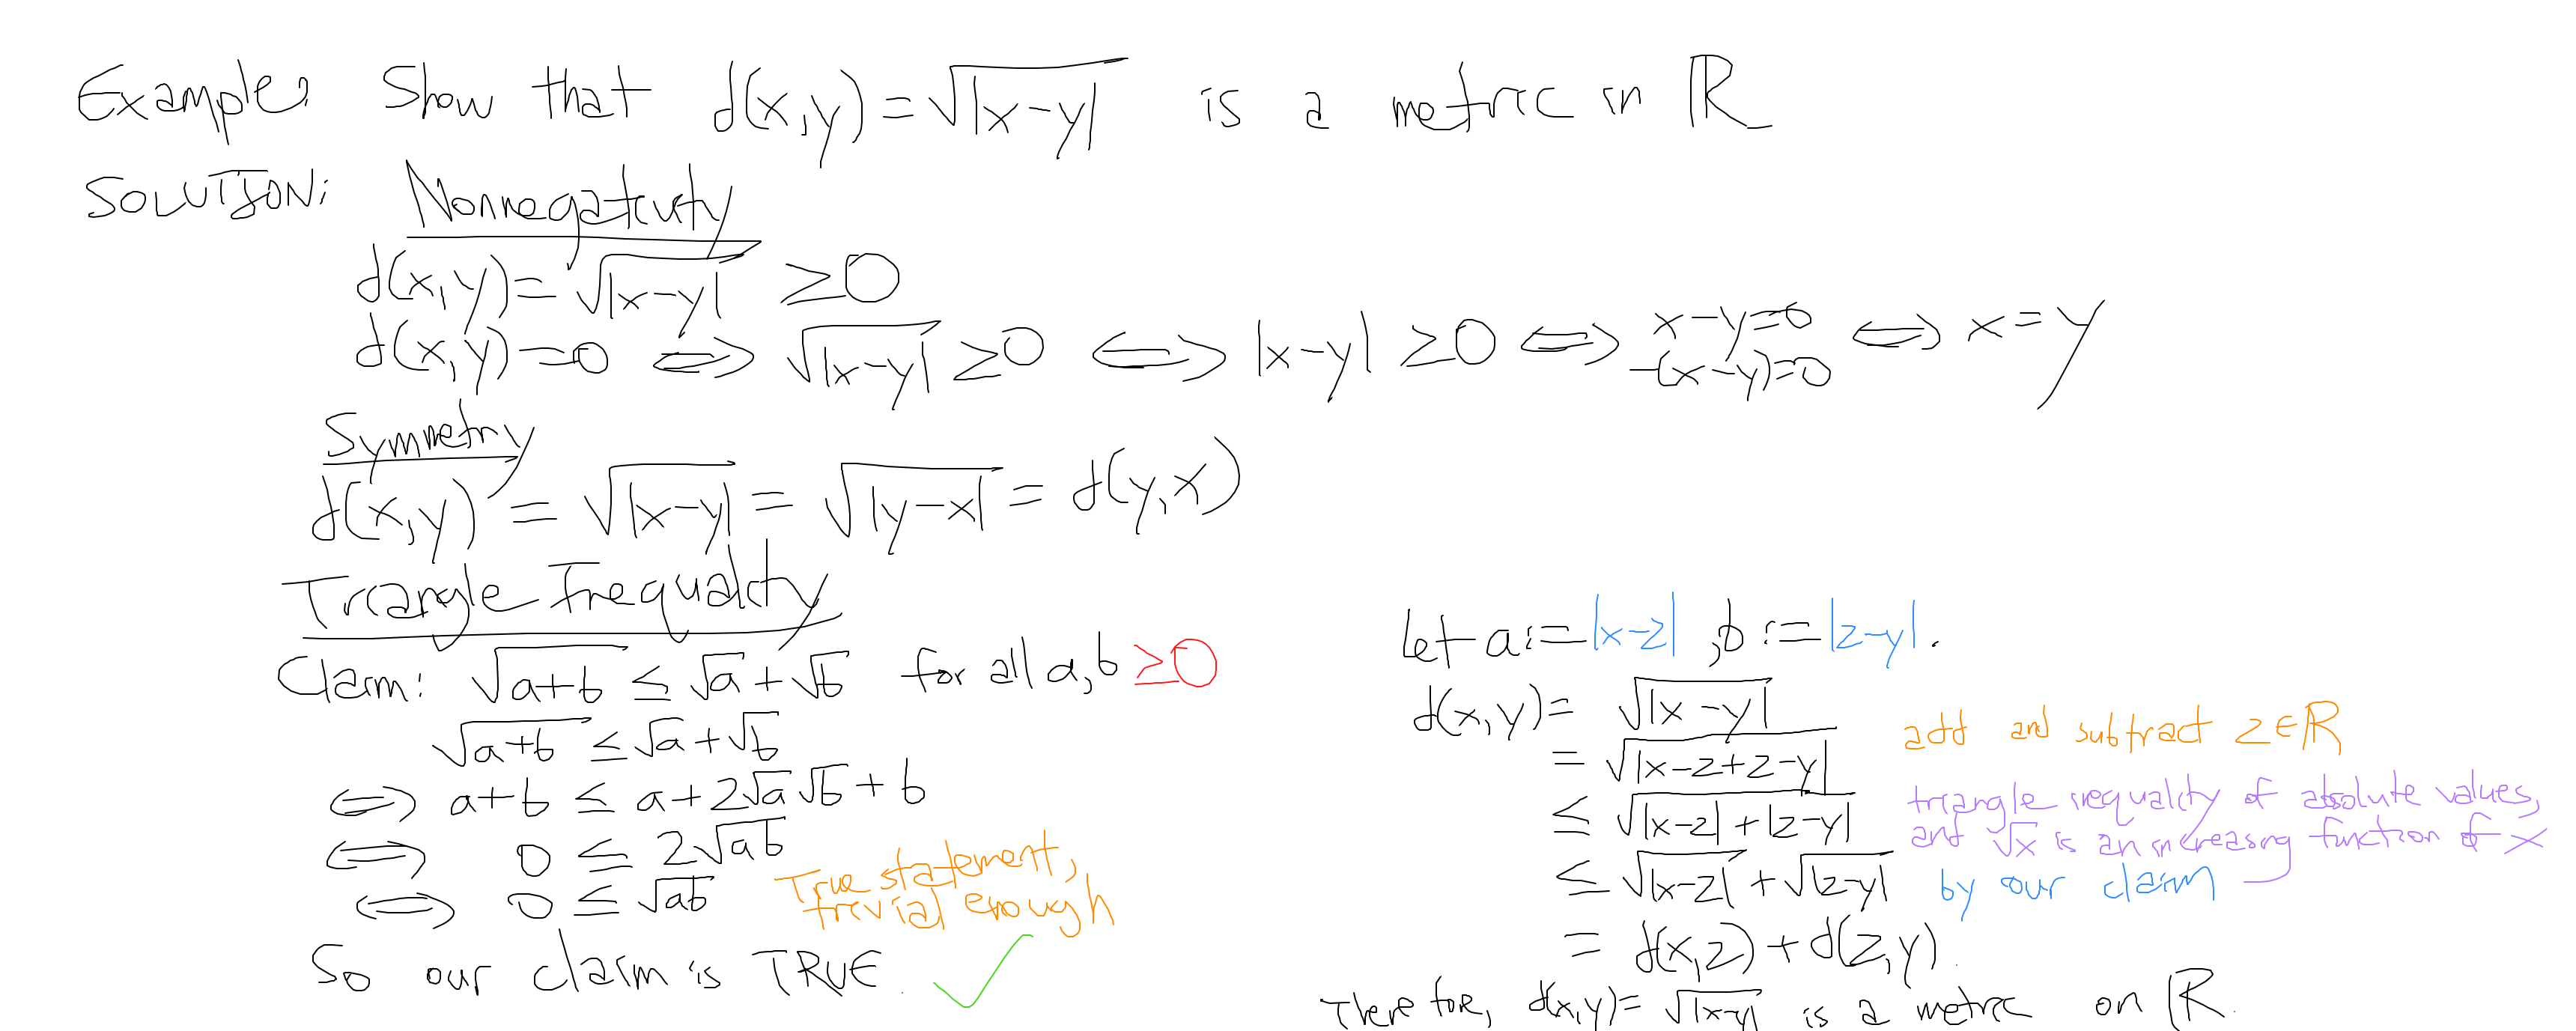 Example: Show that d(x,y)=√|x-y| is a metric in ℝ
SOLUTION: Nonnegativity
d(x,y)=√|x-y| ≥0
d(x,y)=0 ⟺ √|x-y| ≥0 ⟺ |x-y| ≥0 ⟺ x-y=0 -(x-y)=0 ⟺ x=y
Symmetry
d(x,y) = √|x-y| = √|y-x| = d(y,x)
Triangle Inequality
Claim: √a+b ≤ √a+√b for all a,b ≥0
√a+b ≤ √a+√b
⟺ a+b ≤ a+2√a√b+b
⟺ 0 ≤ 2√ab
⟺ 0 ≤ √ab
True statement,
trivial enough
So our claim is TRUE. ✓
Let a:=|x-z|, b:=|z-y|.
d(x,y)= √|x-y|
= √|x-z+z-y| add and subtract z∈ℝ
≤ √|x-z|+|z-y| triangle inequality of absolute values,
and √x is an increasing function of x
≤ √|x-z| + √|z-y| by our claim
= d(x,z)+d(z,y).
Therefore, d(x,y)= √|x-y| is a metric on ℝ.